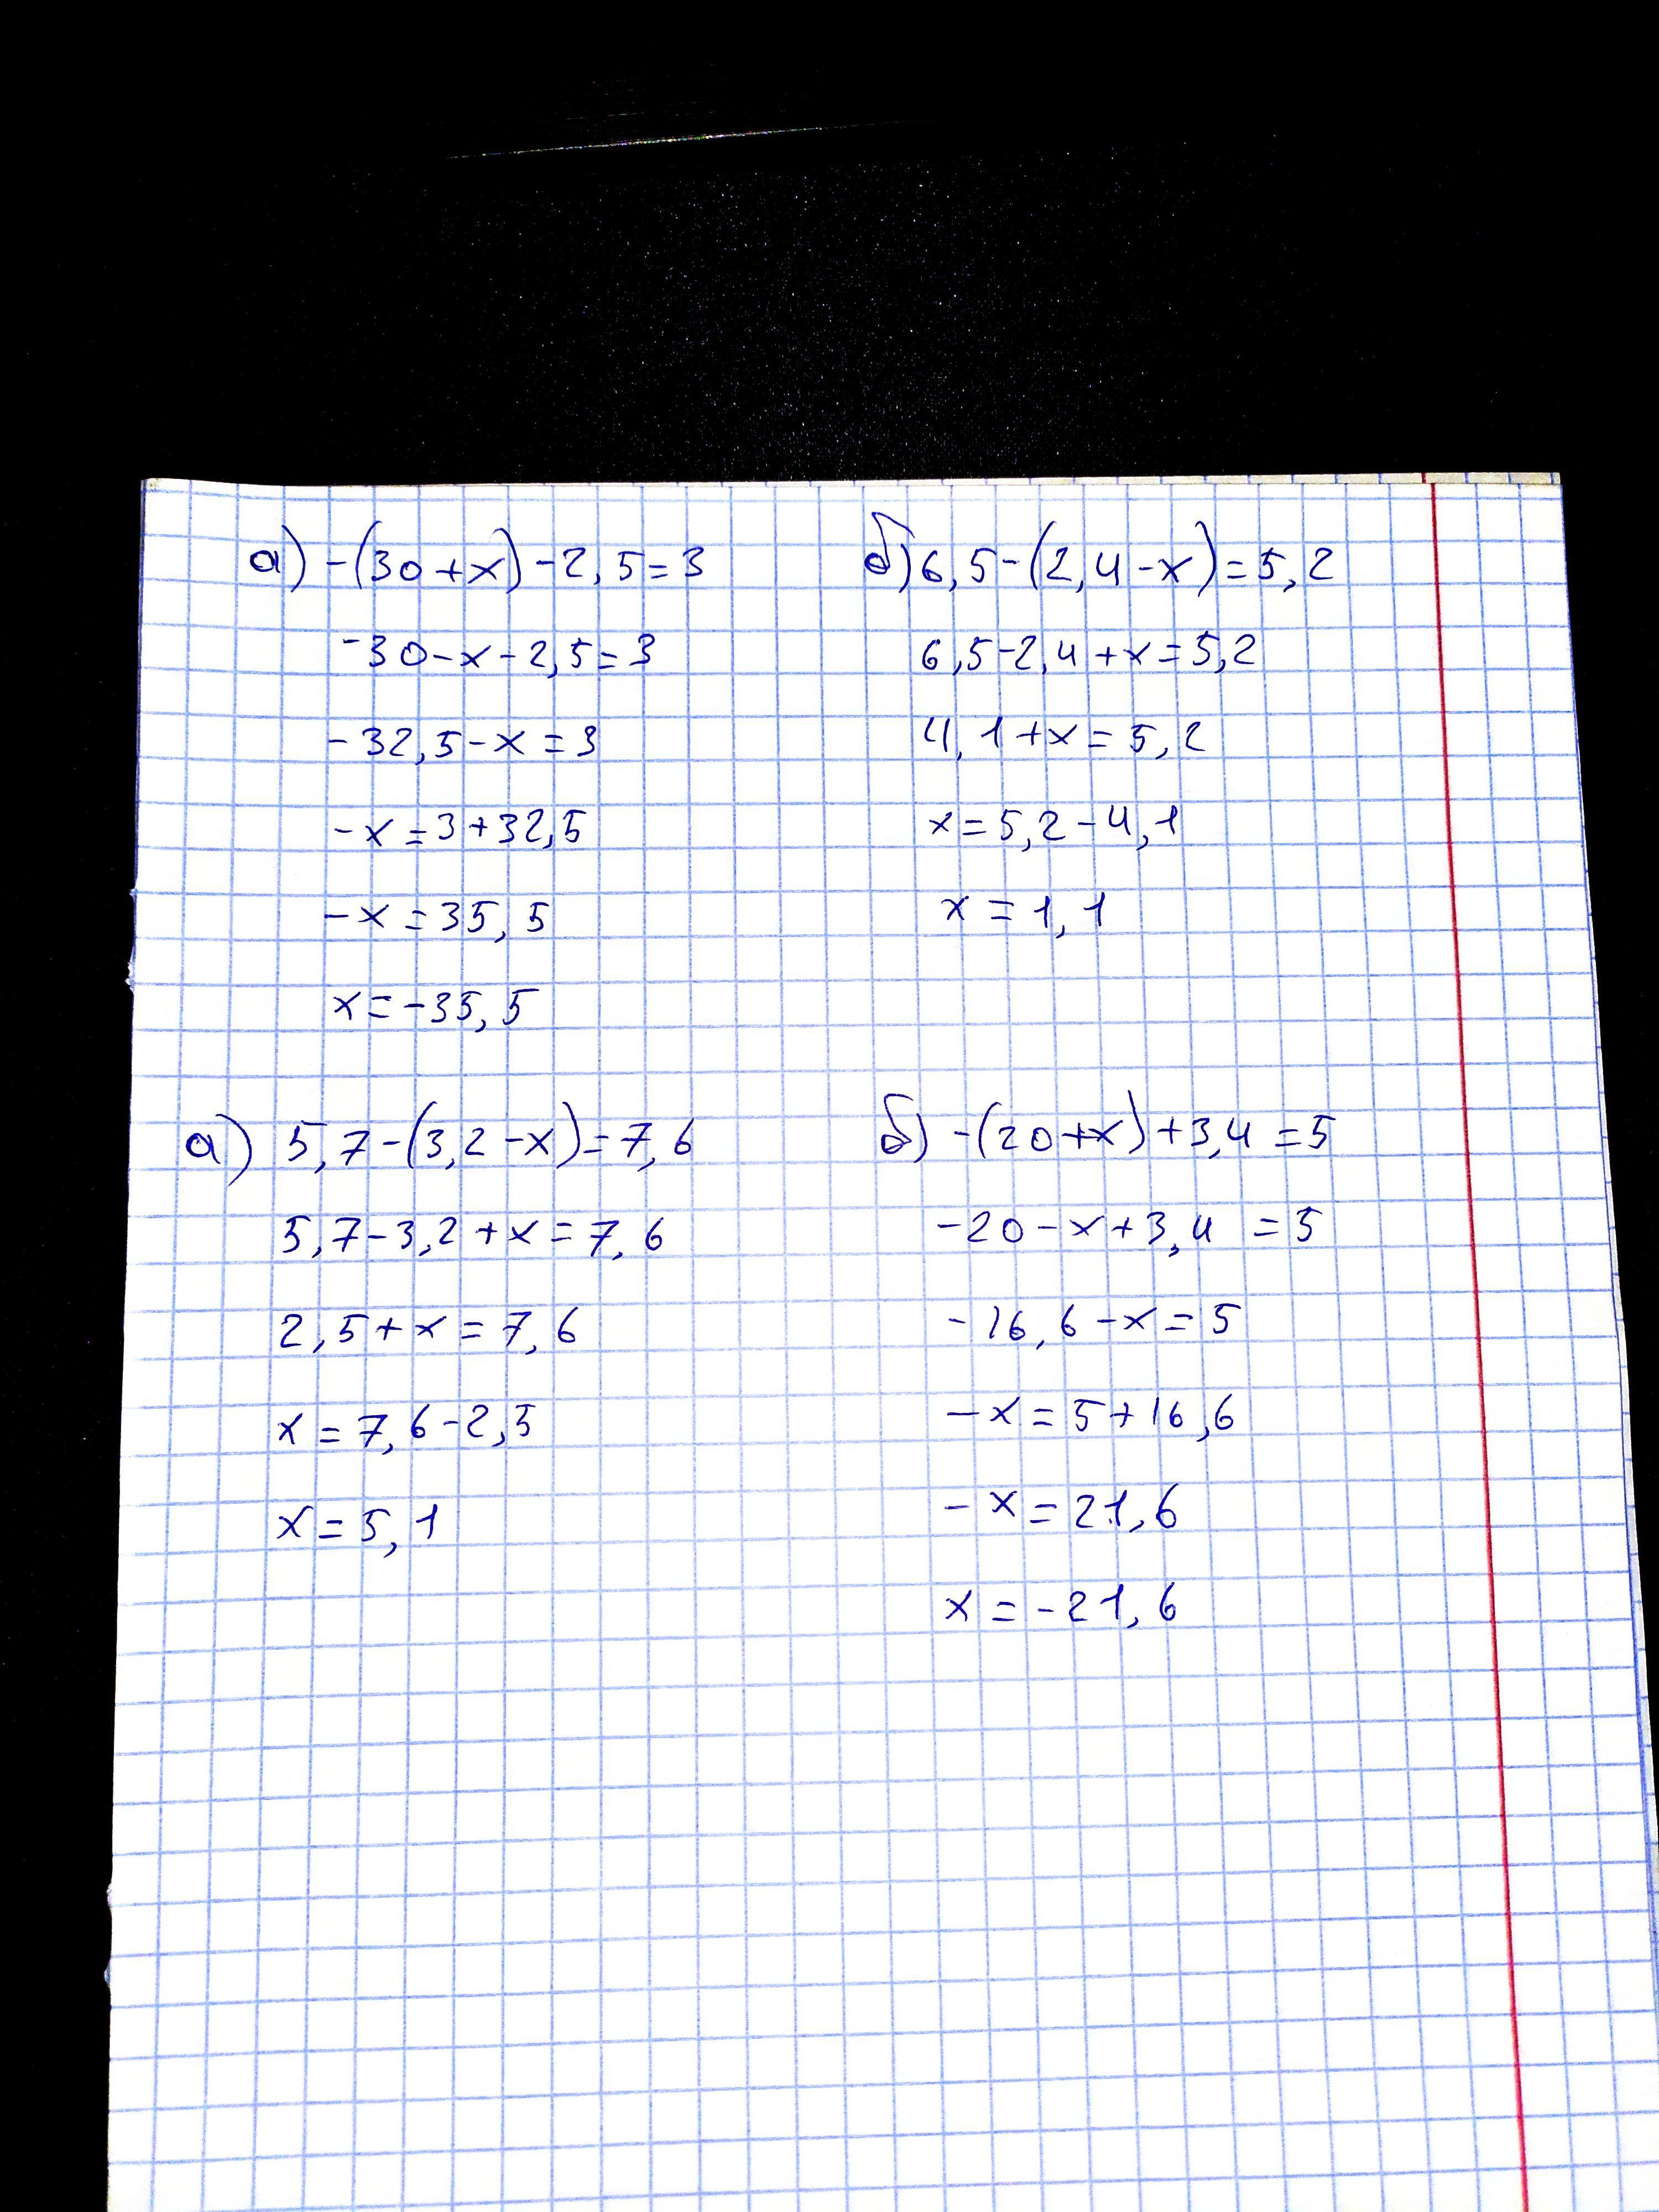 а) -(30+x)-2,5=3
-30-x-2,5=3
-32,5-x=3
-x=3+32,5
-x=35,5
x=-35,5
б) 6,5-(2,4-x)=5,2
6,5-2,4+x=5,2
4,1+x=5,2
x=5,2-4,1
x=1,1
а) 5,7-(3,2-x)=7,6
5,7-3,2+x=7,6
2,5+x=7,6
x=7,6-2,5
x=5,1
б) -(20+x)+3,4=5
-20-x+3,4=5
-16,6-x=5
-x=5+16,6
-x=21,6
x=-21,6